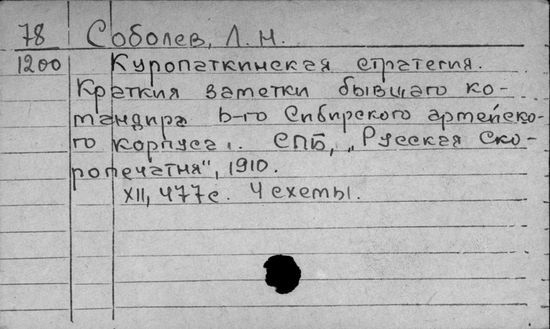 78 Соболев, Л. Н.
1200 Куропаткинская стратегия.
Краткия заметки бывшаго ко-
мандира 6-го Сибирского армейско-
го корпуса. СПБ, „Русская ско-
ропечатня", 1910.
XII, 477с. 4 схемы.